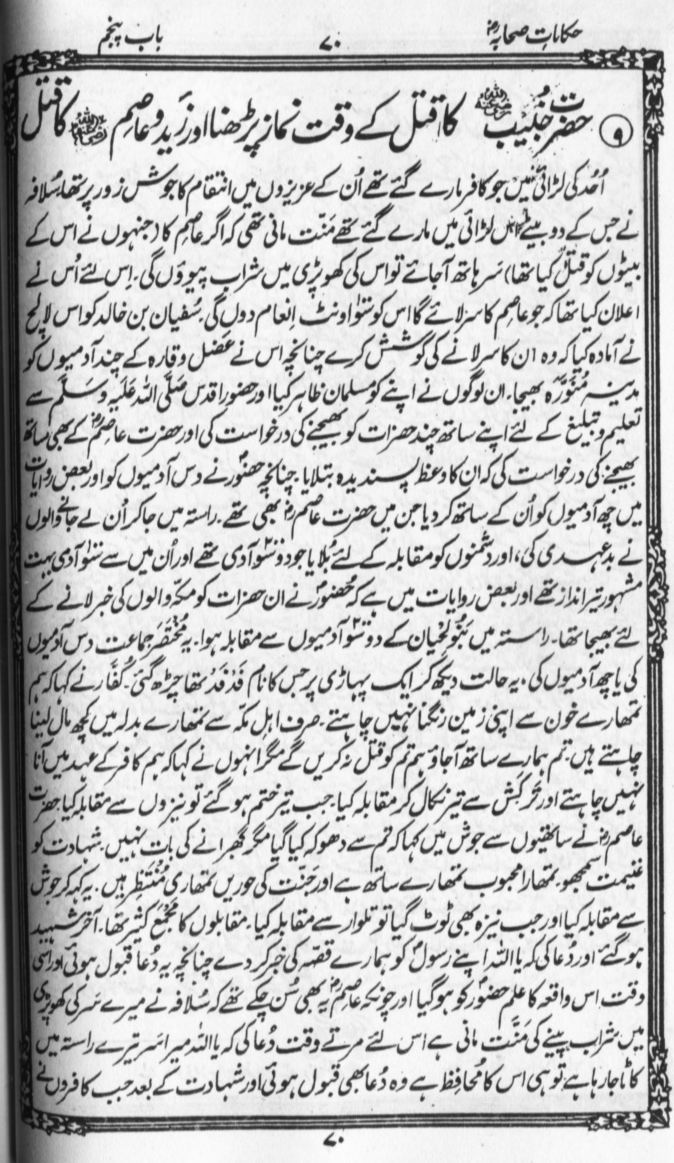 حکایاتِ صحابہؓ
۷۰
باب پنجم
۹ حضرت خُبَیب رضی اللہ عنہ کا قتل کے وقت نماز پڑھنا اور زیدؓ و عاصم رضی اللہ عنہ کا قتل
اُحُد کی لڑائی میں جو کافر مارے گئے تھے اُن کے عزیزوں میں انتقام کا جوش زور پر تھا۔ سُلافہ
نے جس کے دو بیٹے اس لڑائی میں مارے گئے تھے مَنّت مانی تھی کہ اگر عاصم کا (جنہوں نے اس کے
بیٹوں کو قتل کیا تھا) سَر ہاتھ آجائے تو اس کی کھوپڑی میں شراب پیوؤں گی۔ اِس لئے اُس نے
اعلان کیا تھا کہ جو عاصم کا سر لائے گا اس کو سَتّو اونٹ اِنعام دوں گی۔ سُفیان بن خالد کو اس لالچ
نے آمادہ کیا کہ وہ اُن کا سر لانے کی کوشش کرے چنانچہ اس نے عضل و قارہ کے چند آدمیوں کو
مدینہ مُنَوَّرہ بھیجا۔ ان لوگوں نے اپنے کو مُسلمان ظاہر کیا اور حضور اقدس صَلَّی اللہ عَلَیہِ وَسَلَّم سے
تعلیم و تبلیغ کے لئے اپنے ساتھ چند حضرات کو بھیجنے کی درخواست کی اور حضرت عاصمؓ کے بھی ساتھ
بھیجنے کی درخواست کی کہ ان کا وعظ پسندیدہ بتلایا۔ چنانچہ حضورؐ نے دس آدمیوں کو اور بعض روایات
میں چھ آدمیوں کو اُن کے ساتھ کر دیا جن میں حضرت عاصمؓ بھی تھے۔ راستہ میں جاکر اُن لے جانے والوں
نے بدعہدی کی، اور دشمنوں کو مقابلہ کے لئے بُلایا جو دو سَو آدمی تھے اور اُن میں سے سَو آدمی بہت
مشہور تیر انداز تھے اور بعض روایات میں ہے کہ حُضورؐ نے ان حضرات کو مکہ والوں کی خبر لانے کے
لئے بھیجا تھا۔ راستہ میں بَنُو لَحیان کے دو سَو آدمیوں سے مقابلہ ہوا۔ یہ مُختَصَر جماعت دس آدمیوں
کی یا چھ آدمیوں کی، یہ حالت دیکھ کر ایک پہاڑی پر جس کا نام فَدفَد تھا چڑھ گئی۔ کُفّار نے کہا کہ ہم
تمھارے خون سے اپنی زمین رنگنا نہیں چاہتے۔ صرف اہل مکہ سے تمھارے بدلہ میں کچھ مال لینا
چاہتے ہیں۔ تم ہمارے ساتھ آجاؤ ہم تم کو قتل نہ کریں گے مگر انہوں نے کہا کہ ہم کافر کے عہد میں آنا
نہیں چاہتے اور ترکش سے تیر نکال کر مقابلہ کیا۔ جب تیر ختم ہو گئے تو نیزوں سے مقابلہ کیا۔ حضرت
عاصمؓ نے ساتھیوں سے جوش میں کہا کہ تم سے دھوکہ کیا گیا مگر گھبرانے کی بات نہیں۔ شہادت کو
غنیمت سمجھو۔ تمھارا محبوب تمھارے ساتھ ہے اور جنت کی حوریں تمھاری مُنتَظِر ہیں۔ یہ کہہ کر جوش
سے مقابلہ کیا اور جب نیزہ بھی ٹوٹ گیا تو تلوار سے مقابلہ کیا۔ مقابلوں کا مجمع کثیر تھا۔ آخر شہید
ہو گئے اور دُعا کی کہ یا اللہ اپنے رسولؐ کو ہمارے قصّہ کی خبر کر دے چنانچہ یہ دُعا قبول ہوئی اور اسی
وقت اس واقعہ کا علم حضورؐ کو ہو گیا اور چونکہ عاصمؓ یہ بھی سُن چکے تھے کہ سُلافہ نے میرے سَر کی کھوپڑی
میں شراب پینے کی مَنَّت مانی ہے اس لئے مرتے وقت دُعا کی کہ یا اللہ میرا سَر تیرے راستہ میں
کاٹا جارہا ہے تو ہی اس کا مُحافِظ ہے وہ دُعا بھی قبول ہوئی اور شہادت کے بعد جب کافروں نے
۷۰